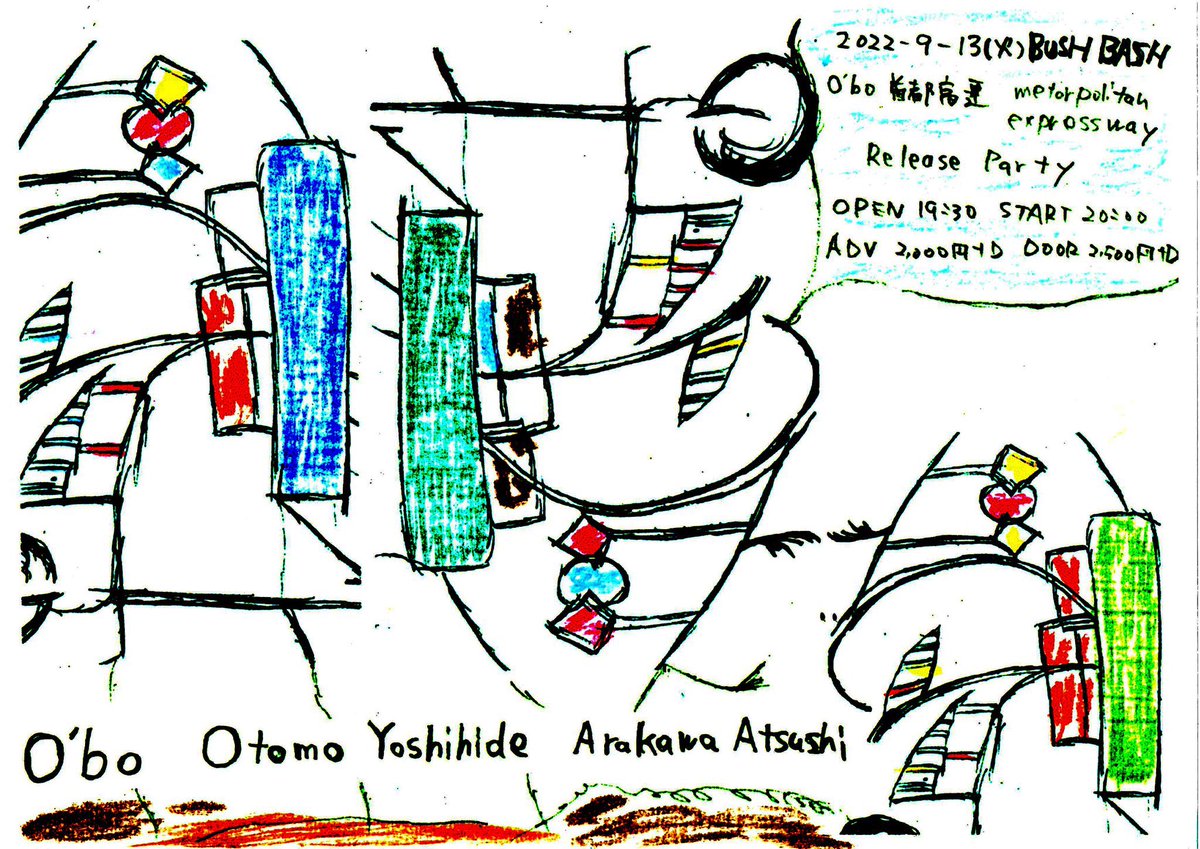 2022-9-13(火) BUSH BASH
O'bo 首都高速 metorpolitan
expressway
Release Party
OPEN 19:30 START 20:00
ADV 2,000円+D DOOR 2,500円+D
O'bo Otomo Yoshihide Arakawa Atsushi